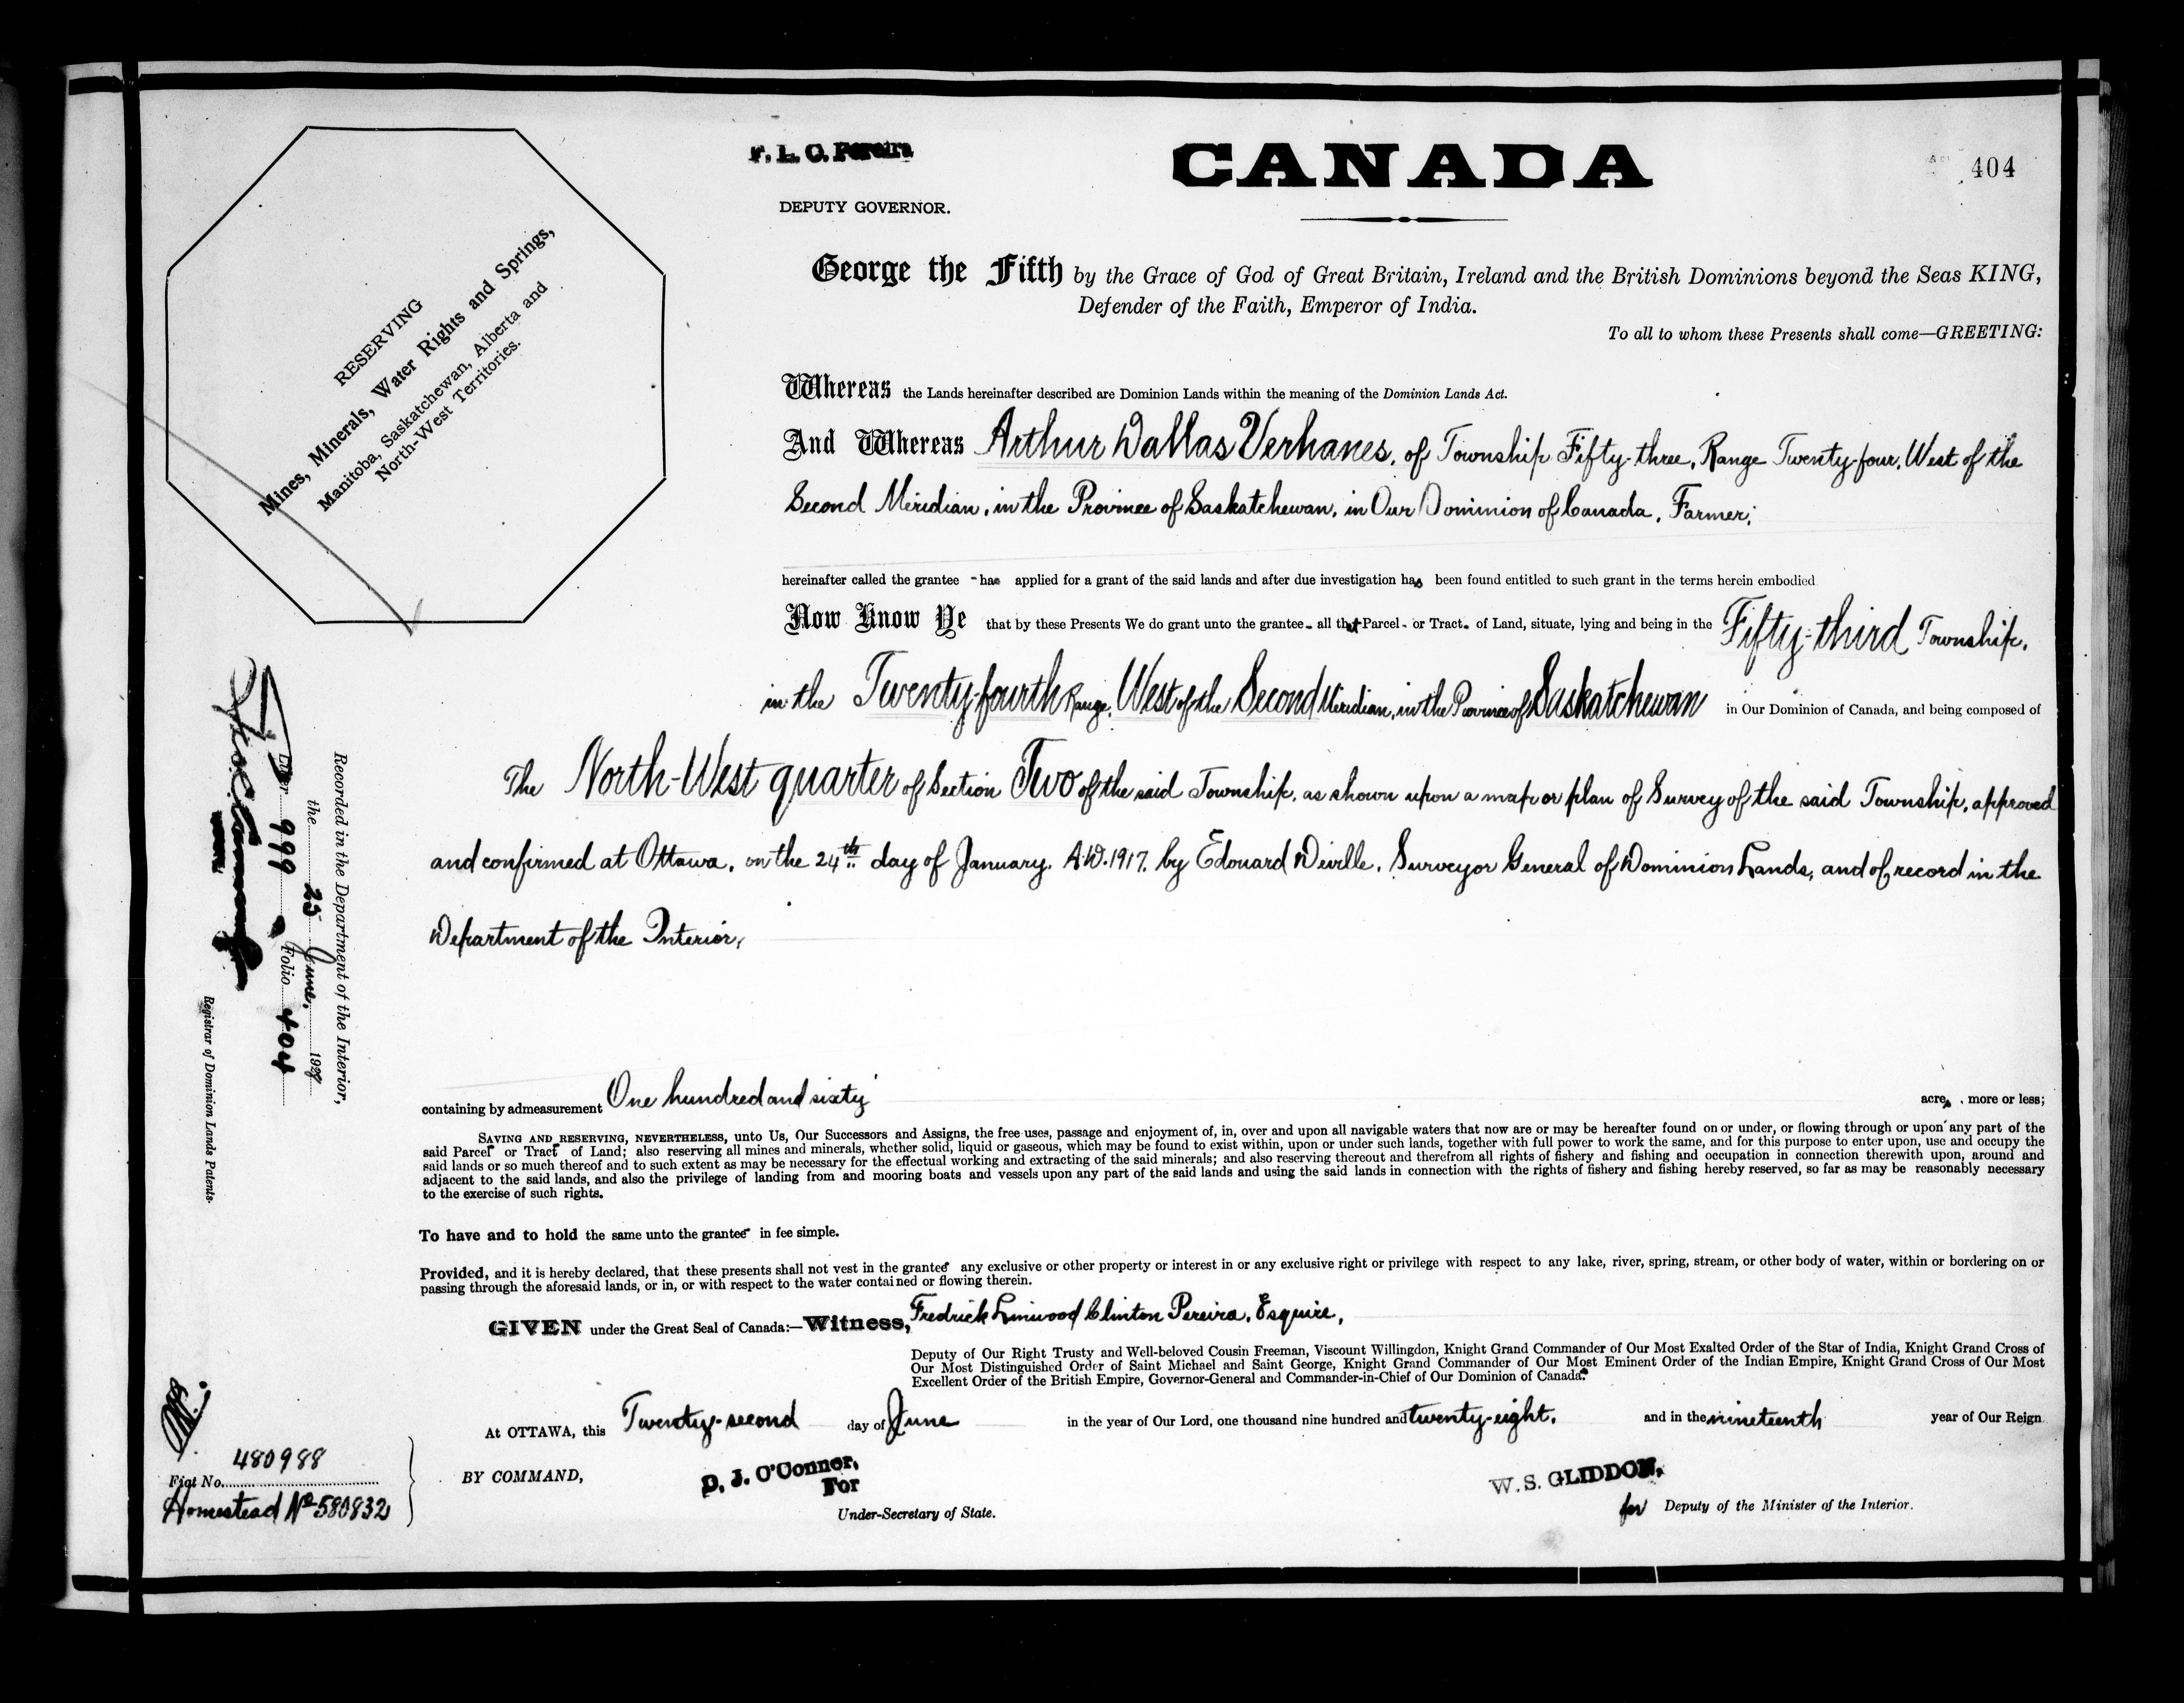 F. L. C. Pereira
DEPUTY GOVERNOR.
CANADA
404
RESERVING
Mines, Minerals, Water Rights and Springs,
Manitoba, Saskatchewan, Alberta and
North-West Territories.
George the Fifth by the Grace of God of Great Britain, Ireland and the British Dominions beyond the Seas KING,
Defender of the Faith, Emperor of India.
To all to whom these Presents shall come—GREETING:
Whereas the Lands hereinafter described are Dominion Lands within the meaning of the Dominion Lands Act.
And Whereas Arthur Dallas Verhanes, of Township Fifty-three, Range Twenty-four, West of the
Second Meridian, in the Province of Saskatchewan, in Our Dominion of Canada, Farmer;
hereinafter called the grantee has applied for a grant of the said lands and after due investigation has been found entitled to such grant in the terms herein embodied
Now Know Ye that by these Presents We do grant unto the grantee all that Parcel or Tract of Land, situate, lying and being in the Fifty-third Township,
in the Twenty-fourth Range, West of the Second Meridian, in the Province of Saskatchewan in Our Dominion of Canada, and being composed of
The North-West quarter of Section Two of the said Township, as shown upon a map or plan of Survey of the said Township, approved
and confirmed at Ottawa, on the 24th day of January, A.D. 1917, by Edouard Deville, Surveyor General of Dominion Lands, and of record in the
Department of the Interior,
containing by admeasurement One hundred and sixty acres, more or less;
SAVING AND RESERVING, NEVERTHELESS, unto Us, Our Successors and Assigns, the free uses, passage and enjoyment of, in, over and upon all navigable waters that now are or may be hereafter found on or under, or flowing through or upon any part of the
said Parcel or Tract of Land; also reserving all mines and minerals, whether solid, liquid or gaseous, which may be found to exist within, upon or under such lands, together with full power to work the same, and for this purpose to enter upon, use and occupy the
said lands or so much thereof and to such extent as may be necessary for the effectual working and extracting of the said minerals; and also reserving thereout and therefrom all rights of fishery and fishing and occupation in connection therewith upon, around and
adjacent to the said lands, and also the privilege of landing from and mooring boats and vessels upon any part of the said lands and using the said lands in connection with the rights of fishery and fishing hereby reserved, so far as may be reasonably necessary
to the exercise of such rights.
To have and to hold the same unto the grantee in fee simple.
Provided, and it is hereby declared, that these presents shall not vest in the grantee any exclusive or other property or interest in or any exclusive right or privilege with respect to any lake, river, spring, stream, or other body of water, within or bordering on or
passing through the aforesaid lands, or in, or with respect to the water contained or flowing therein.
GIVEN under the Great Seal of Canada:—Witness, Fredrick Linwood Clinton Pereira, Esquire,
Deputy of Our Right Trusty and Well-beloved Cousin Freeman, Viscount Willingdon, Knight Grand Commander of Our Most Exalted Order of the Star of India, Knight Grand Cross of
Our Most Distinguished Order of Saint Michael and Saint George, Knight Grand Commander of Our Most Eminent Order of the Indian Empire, Knight Grand Cross of Our Most
Excellent Order of the British Empire, Governor-General and Commander-in-Chief of Our Dominion of Canada.
At OTTAWA, this Twenty-second day of June in the year of Our Lord, one thousand nine hundred and twenty-eight, and in the nineteenth year of Our Reign
BY COMMAND,
D. J. O'Connor,
For
Under-Secretary of State.
W. S. GLIDDON,
for Deputy of the Minister of the Interior.
Recorded in the Department of the Interior,
the 25 June, 1928
Liber 999 Folio 404
Registrar of Dominion Lands Patents.
Fiat No. 480988
Homestead No 580832